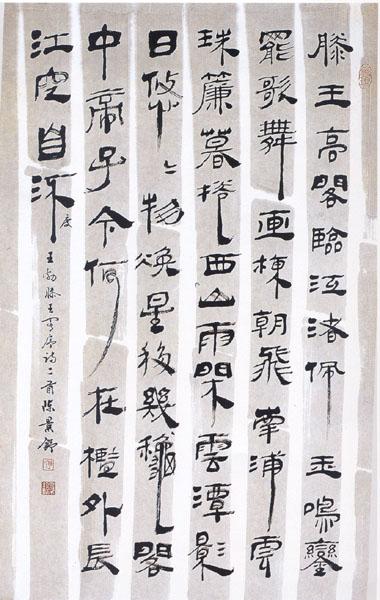 滕王高閣臨江渚佩玉鳴鑾
罷歌舞画棟朝飛南浦雲
珠簾暮捲西山雨閑雲潭影
日悠〻物換星移幾龝閣
中帝子今何在檻外長
江空自流 度
王勃滕王閣序詩 首陳景舒